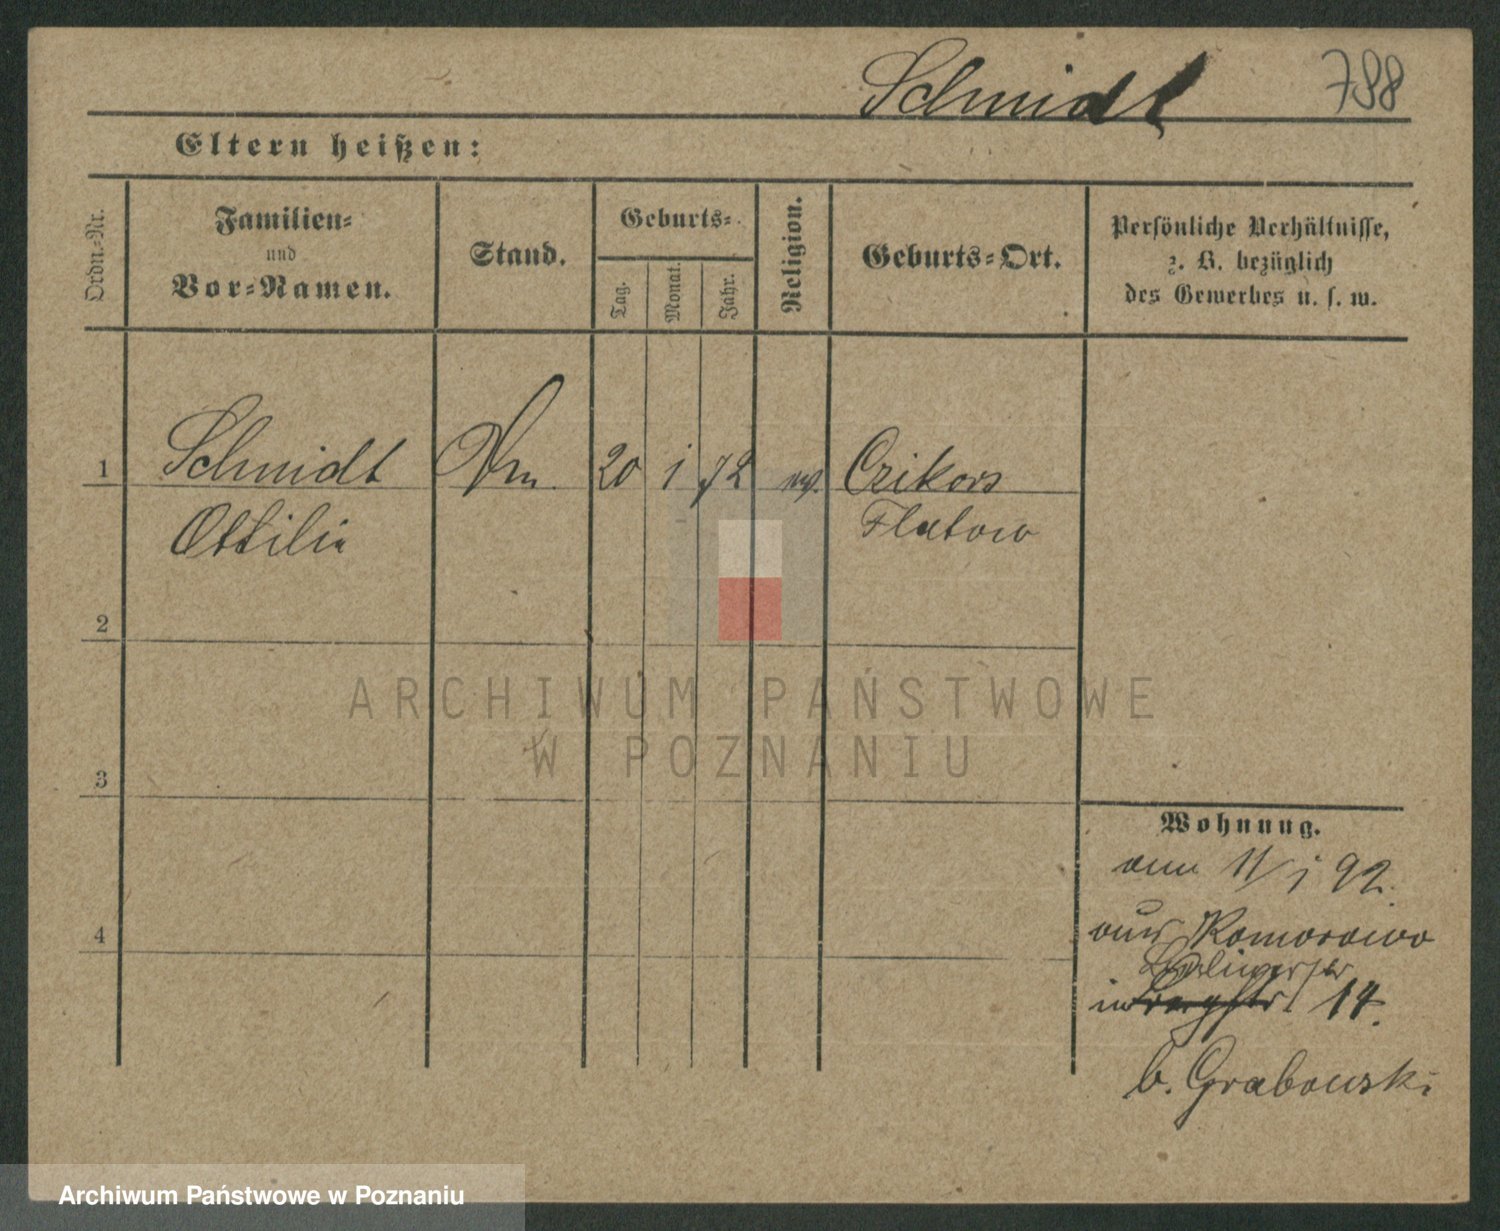 Schmidt 798
Eltern heißen:
Ordn.-Nr.
Familien-
und
Vor-Namen.
Stand.
Geburts-
Tag.
Monat.
Jahr.
Religion.
Geburts-Ort.
Persönliche Verhältnisse,
z. B. bezüglich
des Gewerbes u. s. w.
1 Schmidt 20 1 72 Czikors
Ottilie Flatow
2
3
4
ARCHIWUM PAŃSTWOWE
W POZNANIU
Wohnung.
11/1 92.
aus Komorowo
in 14.
b. Grabowski
Archiwum Państwowe w Poznaniu